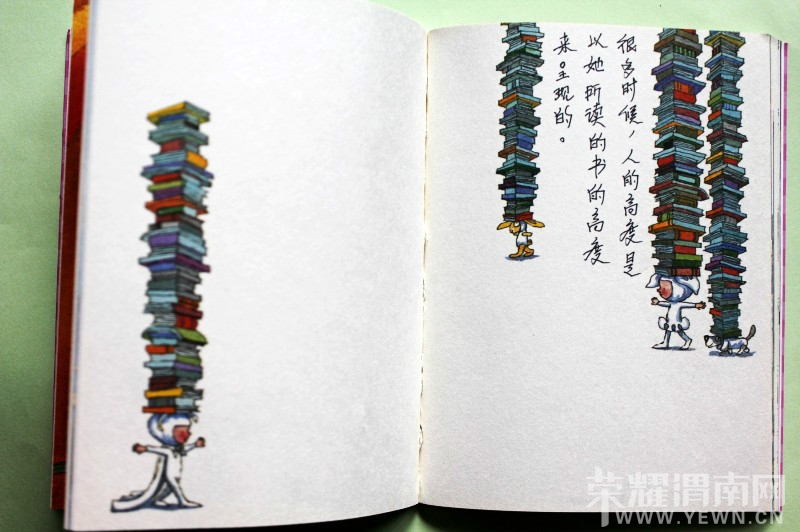 很多时候，人的高度是
以她所读的书的高度
来呈现的。
荣耀渭南网
WWW.YEWN.CN